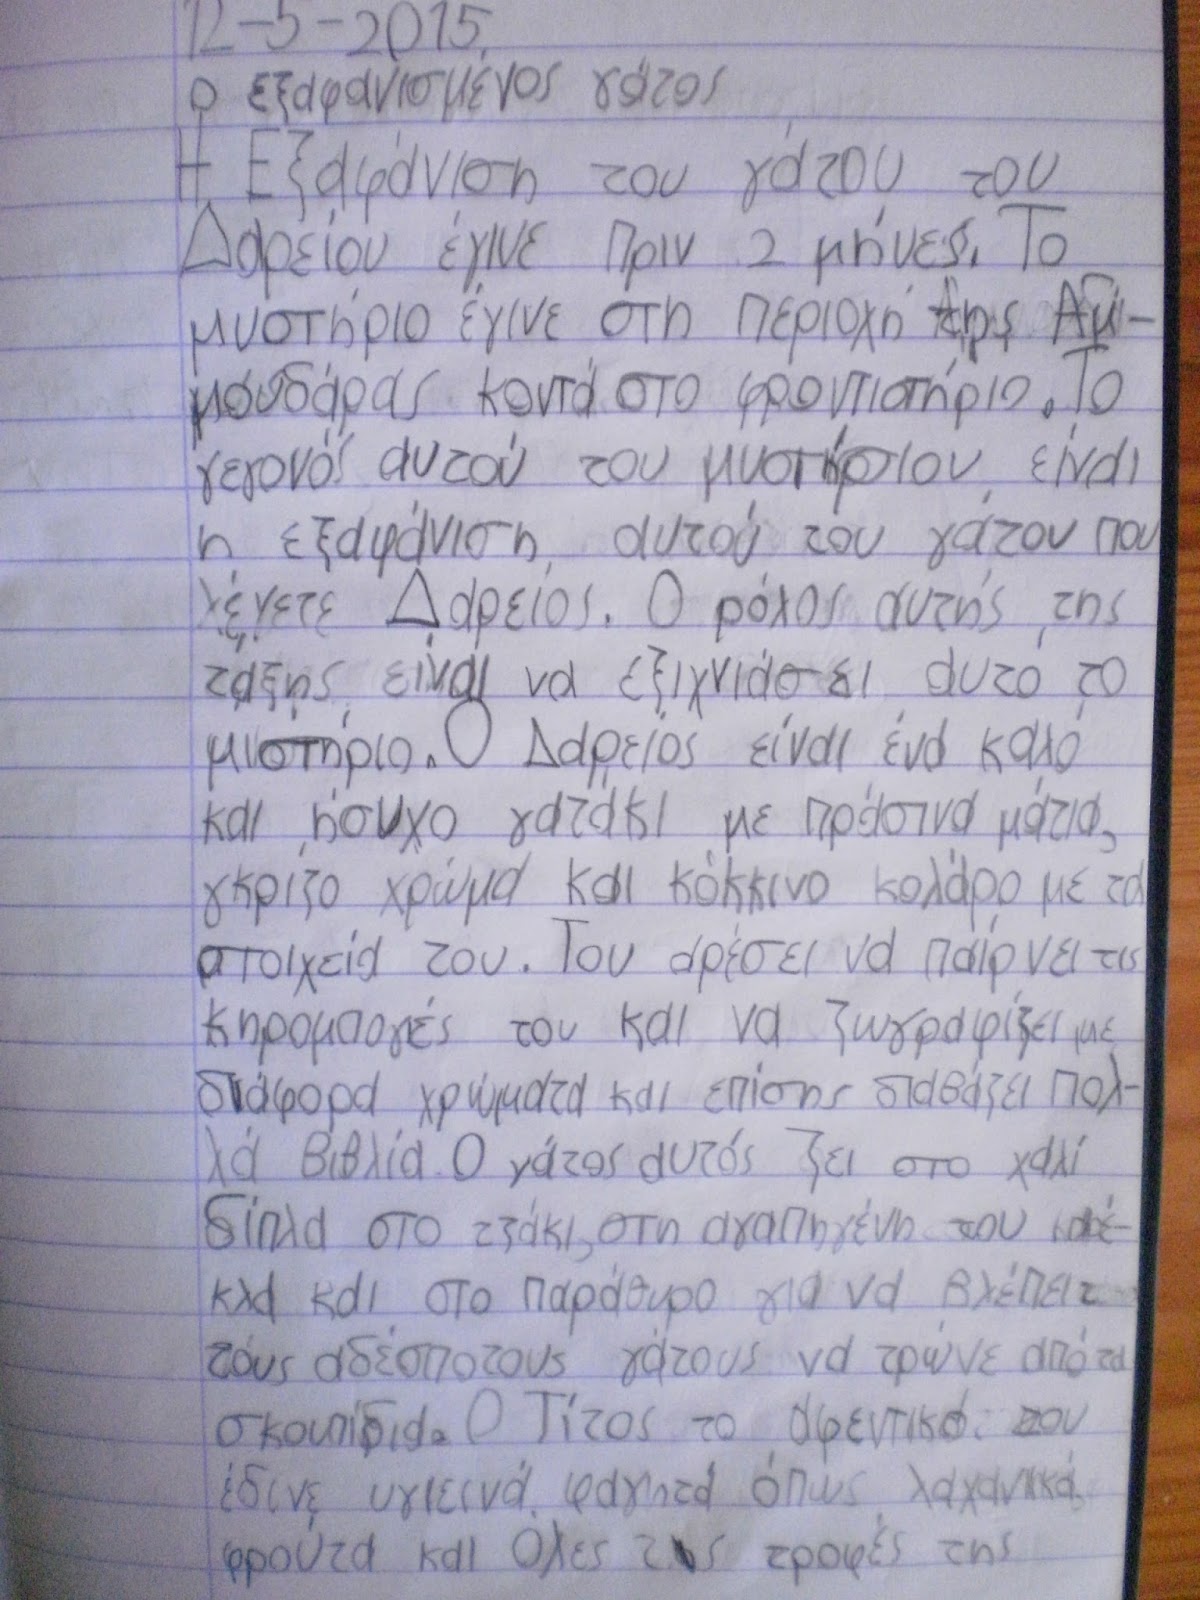 12-5-2015.
ο εξαφανισμένος γάτος
Η Εξαφάνιση του γάτου του
Δαρείου έγινε πριν 2 μήνες. Το
μυστήριο έγινε στη περιοχή της Αμ-
μουδάρας κοντά στο φροντιστήριο. Το
γεγονός αυτού του μυστήριου είναι
η εξαφάνιση αυτού του γάτου που
λέγετε Δαρείος. Ο ρόλος αυτής της
τάξης είναι να εξιχνιάσει αυτό το
μυστήριο. Ο Δαρείος είναι ένα καλό
και ήσυχο γατάκι με πράσινα μάτια,
γκρίζο χρώμα και κόκκινο κολάρο με τα
στοιχεία του. Του αρέσει να παίρνει τις
κηρομπογές του και να ζωγραφίζει με
διάφορα χρώματα και επίσης διαβάζει πολ-
λά βιβλία. Ο γάτος αυτός ζει στο χαλί
δίπλα στο τζάκι, στη αγαπηγένη του καρέ-
κλα και στο παράθυρο για να βλέπει
τους αδέσποτους γάτους να τρώνε από τα
σκουπίδια. Ο Τίτος το αφεντικό του
έδινε υγιεινά φαγητά όπως λαχανικά,
φρούτα και όλες τις τροφές της